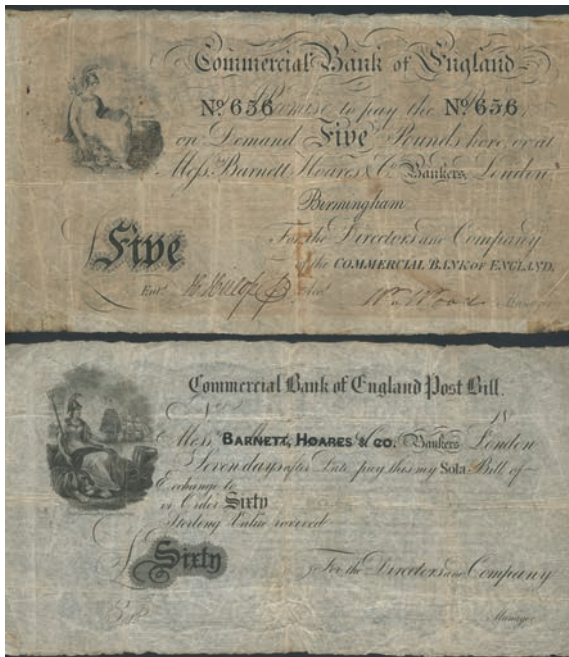 Commercial Bank of England
Nº 656 Promise to pay the Nº 656
on Demand Five Pounds here or at
Messrs. Barnett Hoares & Co. Bankers, London
Birmingham
For the Directors and Company
of the COMMERCIAL BANK OF ENGLAND.
£Five
Entd.
Wm Wood Manager
Commercial Bank of England Post Bill.
No. 18
Messrs. BARNETT, HOARES & CO. Bankers London
Seven days after Date pay this my Sola Bill of
Exchange to
or Order Sixty
Sterling Value received
£Sixty
For the Directors and Company
Manager